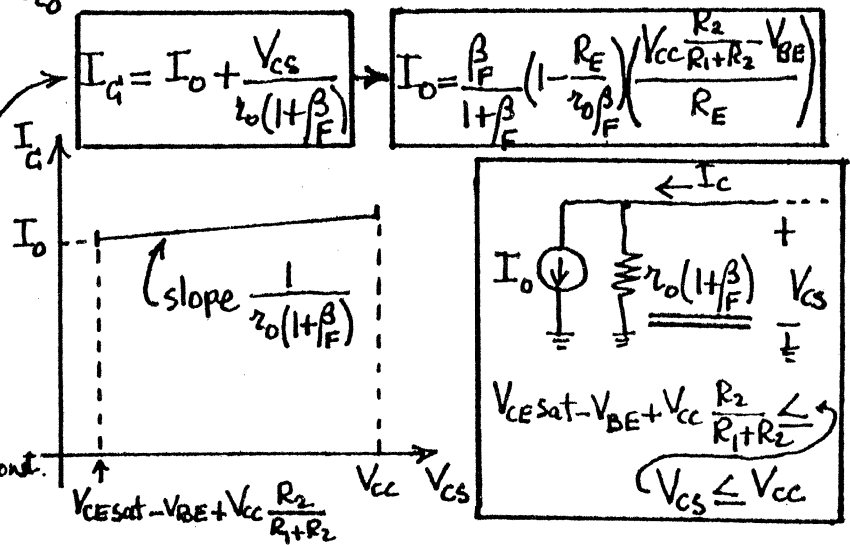 r₀
I_C = I₀ + V_CS / r₀(1+β_F)
I₀ = β_F / (1+β_F) (1 − R_E / r₀β_F) ((V_CC R₂/(R₁+R₂) − V_BE) / R_E)
I_C
I₀
slope 1 / r₀(1+β_F)
V_CC
V_CS
V_CE sat − V_BE + V_CC R₂/(R₁+R₂)
← I_C
+
I₀
r₀(1+β_F)
V_CS
−
V_CE sat − V_BE + V_CC R₂/(R₁+R₂) ≤
V_CS ≤ V_CC